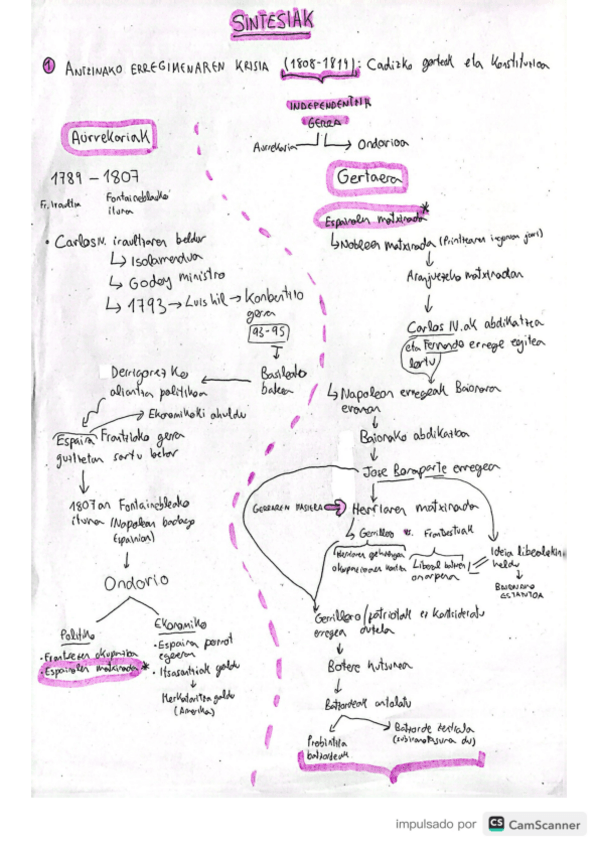 SINTESIAK
1 ANTZINAKO ERREGIMENAREN KRISIA (1808-1814): Cadizko gorteak eta Konstituzioa
INDEPENDENTZIA
GERRA
Aurrekaria Ondorioa
Aurrekariak
1789 - 1807
Fr. Iraultza
Fontainebleauko
ituna
• Carlos IV. iraultzaren beldur
↳ Isolamendua
↳ Godoy ministro
↳ 1793 → Luis hil → Konbentzio
gerra
93-95
Basileako
bakea
Derrigorrezko
aliantza politikoa
→ Ekonomikoki ahuldu
Espainia Frantziako gerra
guztietan sartu behar
1807an Fontainebleako
ituna (Napoleon badago
Espainian)
Ondorio
Politiko
• Frantsesen okupazioa
• Espainolen matxinada *
Ekonomiko
• Espainia porrot
egoeran
• Itsasontziak galdu
Merkataritza galdu
(Amerika)
Gertaera
Espainolen matxinada *
↳ Nobleen matxinada (Printzearen inguruan jarri)
Aranjuezeko matxinadan
Carlos IV.ak abdikatzea
eta Fernando errege egitea
lortu
↳ Napoleon erregeak Baionara
eraman
Baionako abdikazioa
Jose Bonaparte erregea
GERRAREN HASIERA → Herriaren matxinada
↳ Gerrilleroak vs. Frantsestuak
Herriaren gehiengoa
okupazioaren kontra
Liberal batzuen
onarpena
Ideia liberalekin
heldu
BAIONAKO
ESTATUTUA
Gerrillero/patriotak ez kontsideratu
erregea dutela
Botere hutsunea
Batzordeak antolatu
Probintzia
batzordeak
Batzorde zentrala
(subiranotasuna du)
impulsado por CS CamScanner